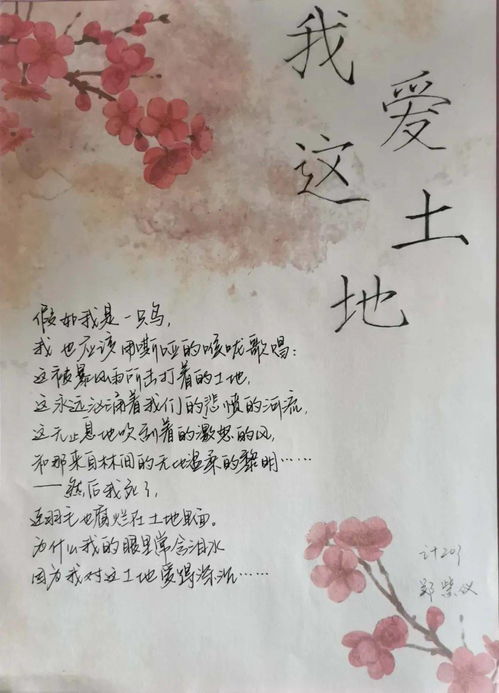 我爱这土地
假如我是一只鸟，
我也应该用嘶哑的喉咙歌唱：
这被暴风雨所击打着的土地，
这永远汹涌着我们的悲愤的河流，
这无止息地吹刮着的激怒的风，
和那来自林间的无比温柔的黎明……
——然后我死了，
连羽毛也腐烂在土地里面。
为什么我的眼里常含泪水
因为我对这土地爱得深沉……
计201
郑紫仪